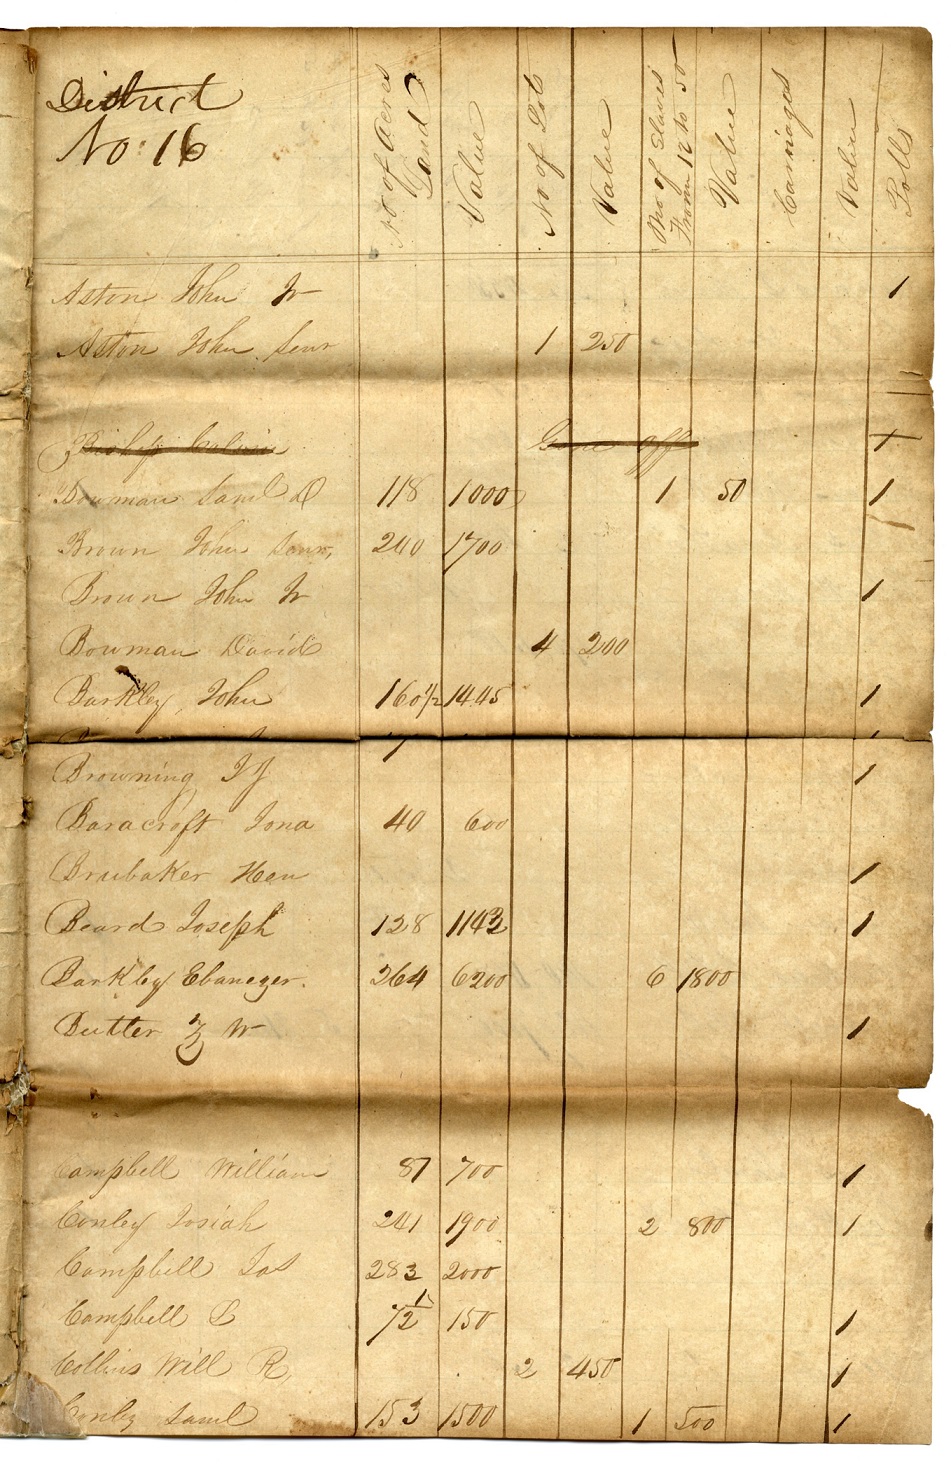 District
No 16
No of Acres Land
Value
No of Lots
Value
No of Slaves From 12 to 50
Value
Carriages
Value
Polls
Aston John Jr 1
Aston John Senr 1 250
Bishop Calvin Gone off 1
Bowman Saml D 118 1000 1 50 1
Brown John Senr, 240 1700
Brown John Jr 1
Bowman David 4 200
Barkley, John 160 1/2 1445 1
Browning 1
Baracroft Jona 40 600
Brubaker Hen 1
Beard Joseph 128 1142 1
Barkley Ebanezer. 264 6200 6 1800
Butter Z W 1
Campbell William 81 700 1
Conley Josiah 241 1900 2 800 1
Campbell Jas 283 2000
Campbell L 7 1/2 150 1
Collins Will R, 2 450 1
Conley Saml 153 1500 1 500 1